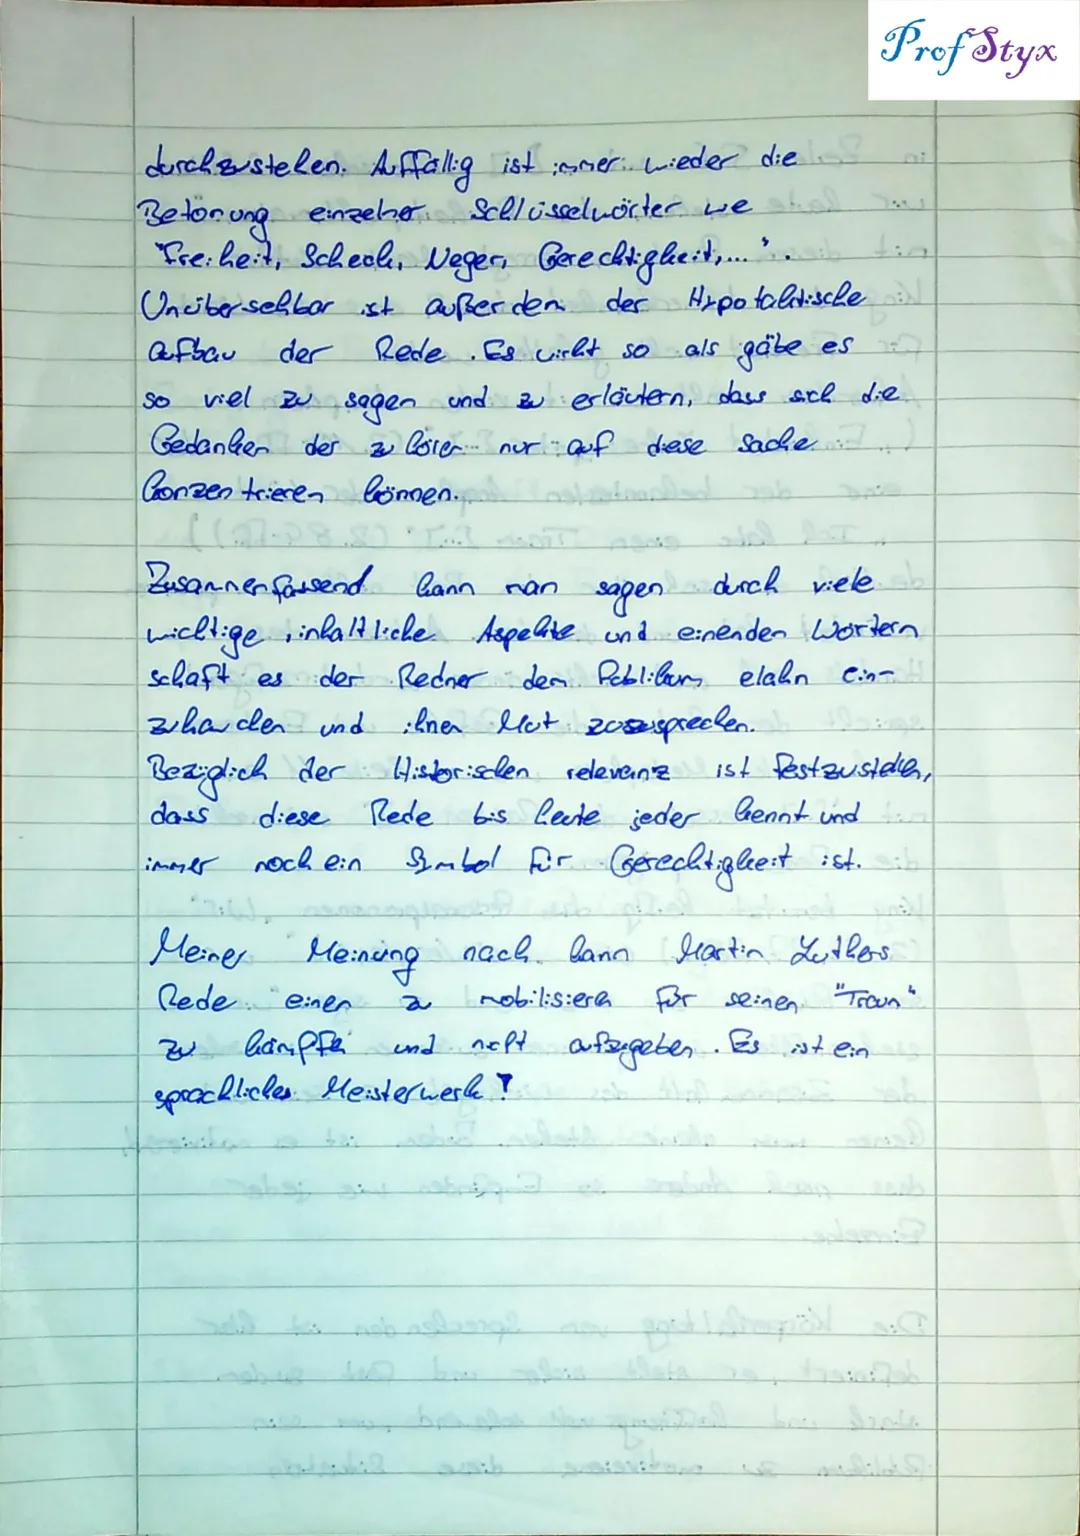 Prof Styx
durchzustehen. Auffällig ist immer wieder die
Betonung einzelner Schlüsselwörter we
"Freiheit, Scheck, Neger, Gerechtigkeit,...".
Unübersehbar ist außerdem der Hypotaktische
aufbau der Rede. Es wirkt so als gäbe es
so viel zu sagen und zu erläutern, dass sich die
Gedanken der zu hörer nur auf diese Sache
konzentrieren können.
Zusammenfassend kann man sagen durch viele
wichtige, inhaltliche Aspekte und einenden Wörtern
schaft es der Redner dem Publikum elahn ein-
zuhauchen und ihnen Mut zuzusprechen.
Bezüglich der Historischen relevanz ist festzustellen,
dass diese Rede bis heute jeder kennt und
immer noch ein Symbol für Gerechtigkeit ist.
Meiner Meinung nach kann Martin Luthers
Rede einen zu mobilisieren für seinen "Traum"
zu kämpfen und nicht aufzugeben. Es ist ein
sprachliches Meisterwerk!